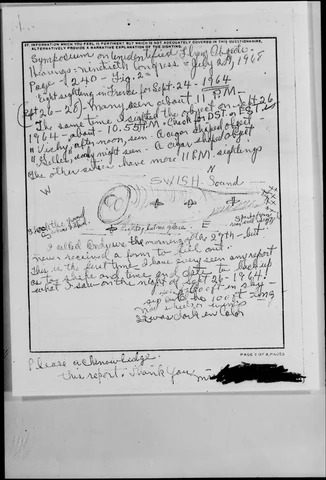 27. INFORMATION WHICH YOU FEEL IS PERTINENT BUT WHICH IS NOT ADEQUATELY COVERED IN THIS QUESTIONNAIRE.
ALTERNATIVELY PROVIDE A NARRATIVE EXPLANATION OF THE SIGHTING.
Symposium on Unidentified Flying Objects
Hearings - ninetieth Congress - July 29, 1968
Page - 240 - Fig. 2 =
Eight sighting in France for Sept. 24 - 1964
Sept 26-28) - Many seen about 11 P.M. -
The same time I sighted the object on Sept 26
1964 - about - 10.55 P.M. Check for DST. or EST.
"Vichy, afternoon, seen - a cigar shaped object -
night seen - a cigar shaped object -
The other cities have more 11 P.M. sightings
SWISH Sound
W
E
I called the morning of the 27th - but
never received a form to fill out.
This is the first time I have every seen any report
as to shape and time and date to back up
what I saw on the night of Sept 26 - 1964!
the 100 ft long -
no wings
It was dark in color
PAGE 5 OF 5 PAGES
Please acknowledge
this report. Thank you,